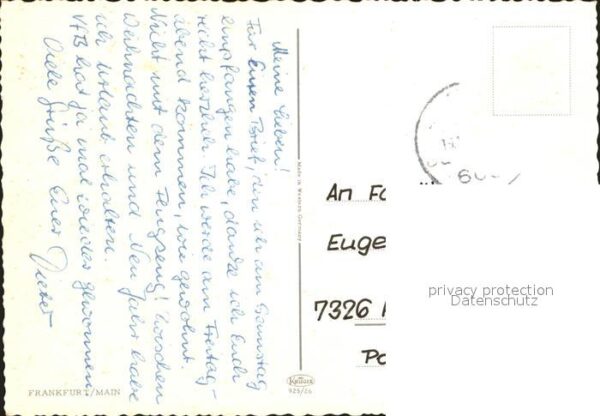 Meine Lieben!
Für Euren Brief, den ich am Samstag
empfangen habe, danke ich Euch
recht herzlich. Ich werde am Freitag-
abend kommen, wie gewohnt.
Nicht mit dem Flugzeug! Zwischen
Weihnachten und Neu Jahr habe
ich Urlaub erhalten.
VfB hat ja mal wieder gewonnen
Viele Grüße Euer Dieter
FRANKFURT/MAIN
Made in Western Germany
Krüger
925/26
An Fa
Euge
7326
Po
privacy protection
Datenschutz